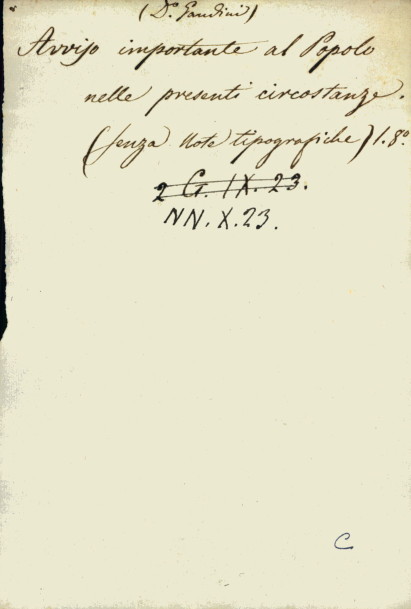 (Dr. Gandini)
Avviso importante al Popolo
nelle presenti circostanze.
(senza Note tipografiche) 1. 8°.
2 G. IX. 23.
NN. X. 23.
C